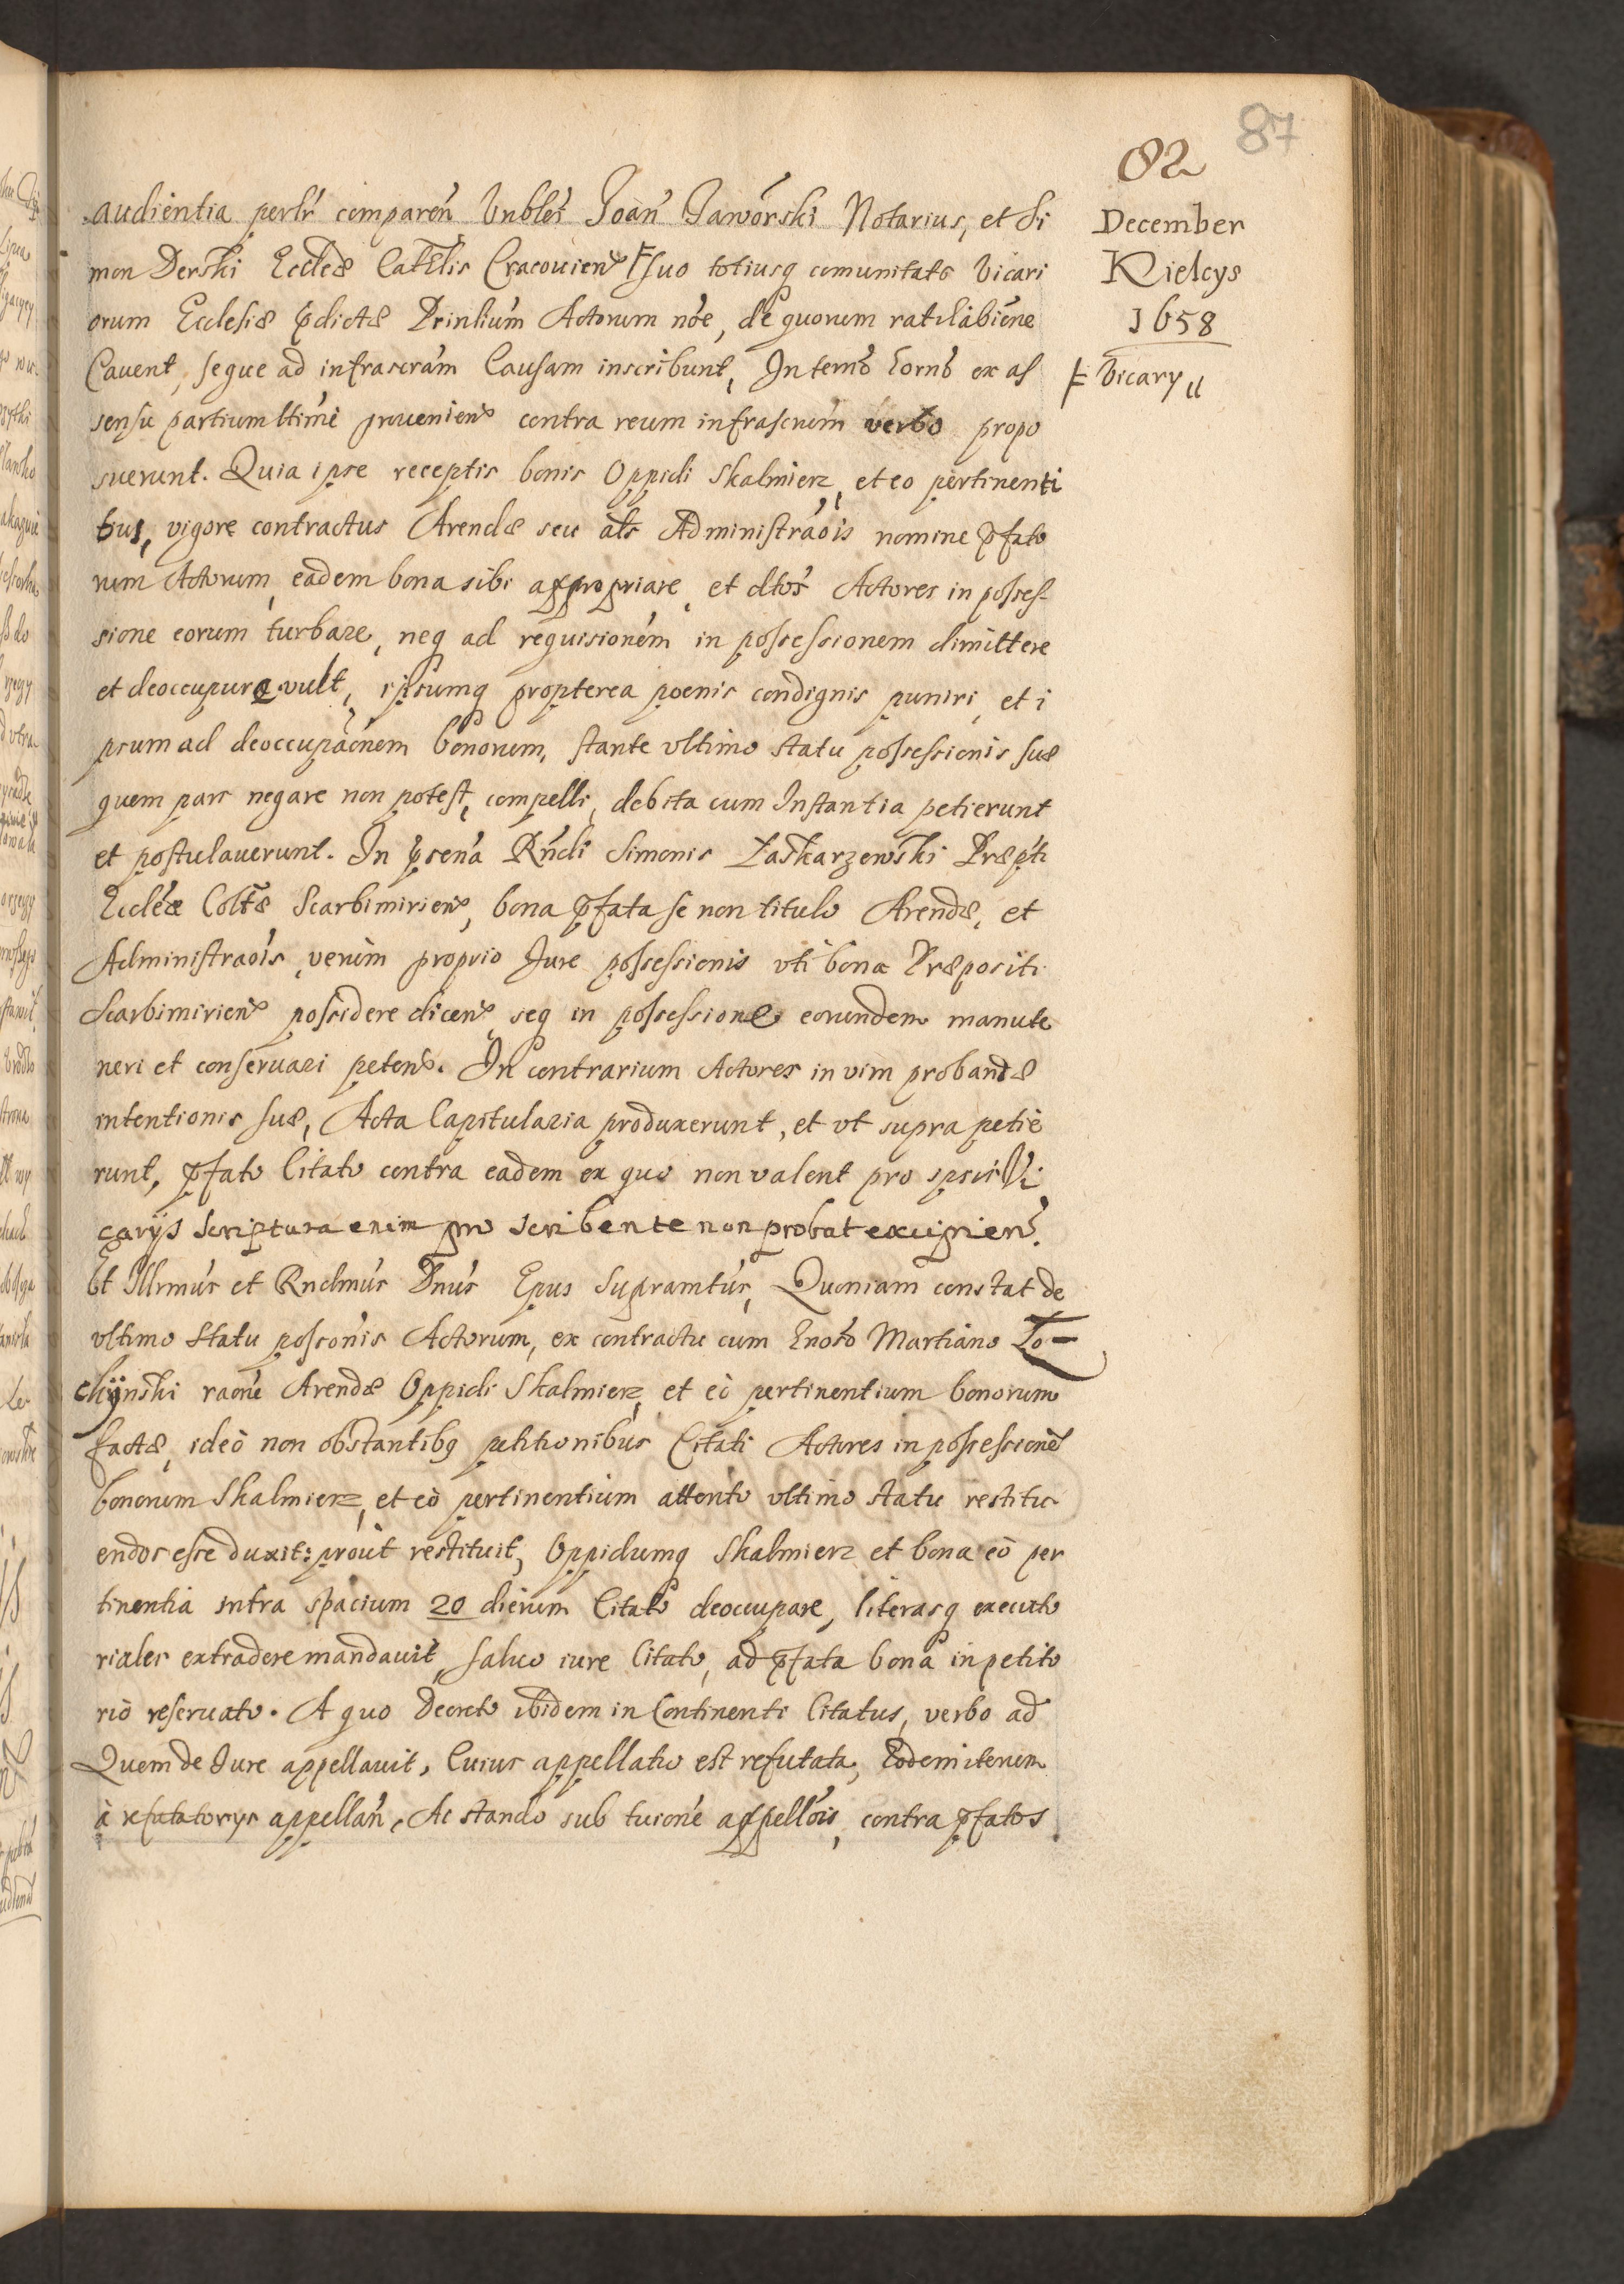 87
82
December
Kielcys
1658
Ⱶ Vicary
audientia persłr comparen̄ Vnbles Joan̄ Jaworski Notarius, et Si
mon Derski Eccleæ Catłlis Cracouien Ⱶ suo totiusq comunitats Vicari
orum Ecclesiæ p̄dictæ Prinlium Actorum nōe, de quorum ratihābiēne
Cauent, seque ad infrascrām Causam inscribunt, In termō hornō ex as
sensu partium ltimē proueniens contra reum infrascrūm verbo propo
suerunt. Quia ipse receptis bonis Oppidi Skalmierz, et eo pertinenti
bus, vigore contractus Arendæ seu ałs Administrāōis nomine p̄fato
rum Actorum, eadem bona sibi appropriare, et dtos Actores in posses
sione eorum turbare, neq ad requisionēm in possessionem dimittere
et deoccupare vult, ipsumq propterea poenis condignis puniri, et i
psum ad deoccupāōnem bonorum, stante vltimo statu possessionis suæ
quem pars negare non potest, compelli, debita cum Instantia petierunt
et postulauerunt. In p̄senā Rn̄di Simonis Zaskarzewski Præpti
Eccleæ Coltæ Scarbimiriens, bona p̄fata se non titulo Arendæ, et
Administraōis, verùm proprio Jure possessionis vti bona Præpositi
Scarbimiriens possidere dicens, seq in possessione eorundem manute
neri et conseruari petens. In contrarium Actores in vim probandæ
intentionis suæ, Acta Capitularia produxerunt, et vt supra petie
runt, p̄fato Citato contra eadem ex quo non valent pro ipsis Vi
carÿs scriptura enim pro scribente non probat excipien.
Et Illrmus et Rndmus Dnus Epus Supramtus, Quoniam constat de
vltimo Statu possonis Actorum, ex contractu cum Gnoso Martiano Lo=
chÿnski raōne Arendæ Oppidi Skalmierz, et eò pertinentium bonorum
factæ, ideò non obstantibq petitionibus Citati Actores in possessionē
bonorum Skalmierz, et eò pertinentium attento vltimo statu restitu
endos esse duxit: prout restituit, Oppidumq Skalmierz et bona eò per
tinentia intra spacium 20 dierum Citato deoccupare, literasq executo
riales extradere mandauit, saluo iure Citato, ad p̄fata bona in petito
riò reseruato. A quo Decreto ibidem in Continenti Citatus, verbo ad
Quem de Jure appellauit, Cuius appellatio est refutata, Eodem iterum
à refutatorÿs appellan̄. Ac stando sub tuiōne appellōis, contra p̄fatos